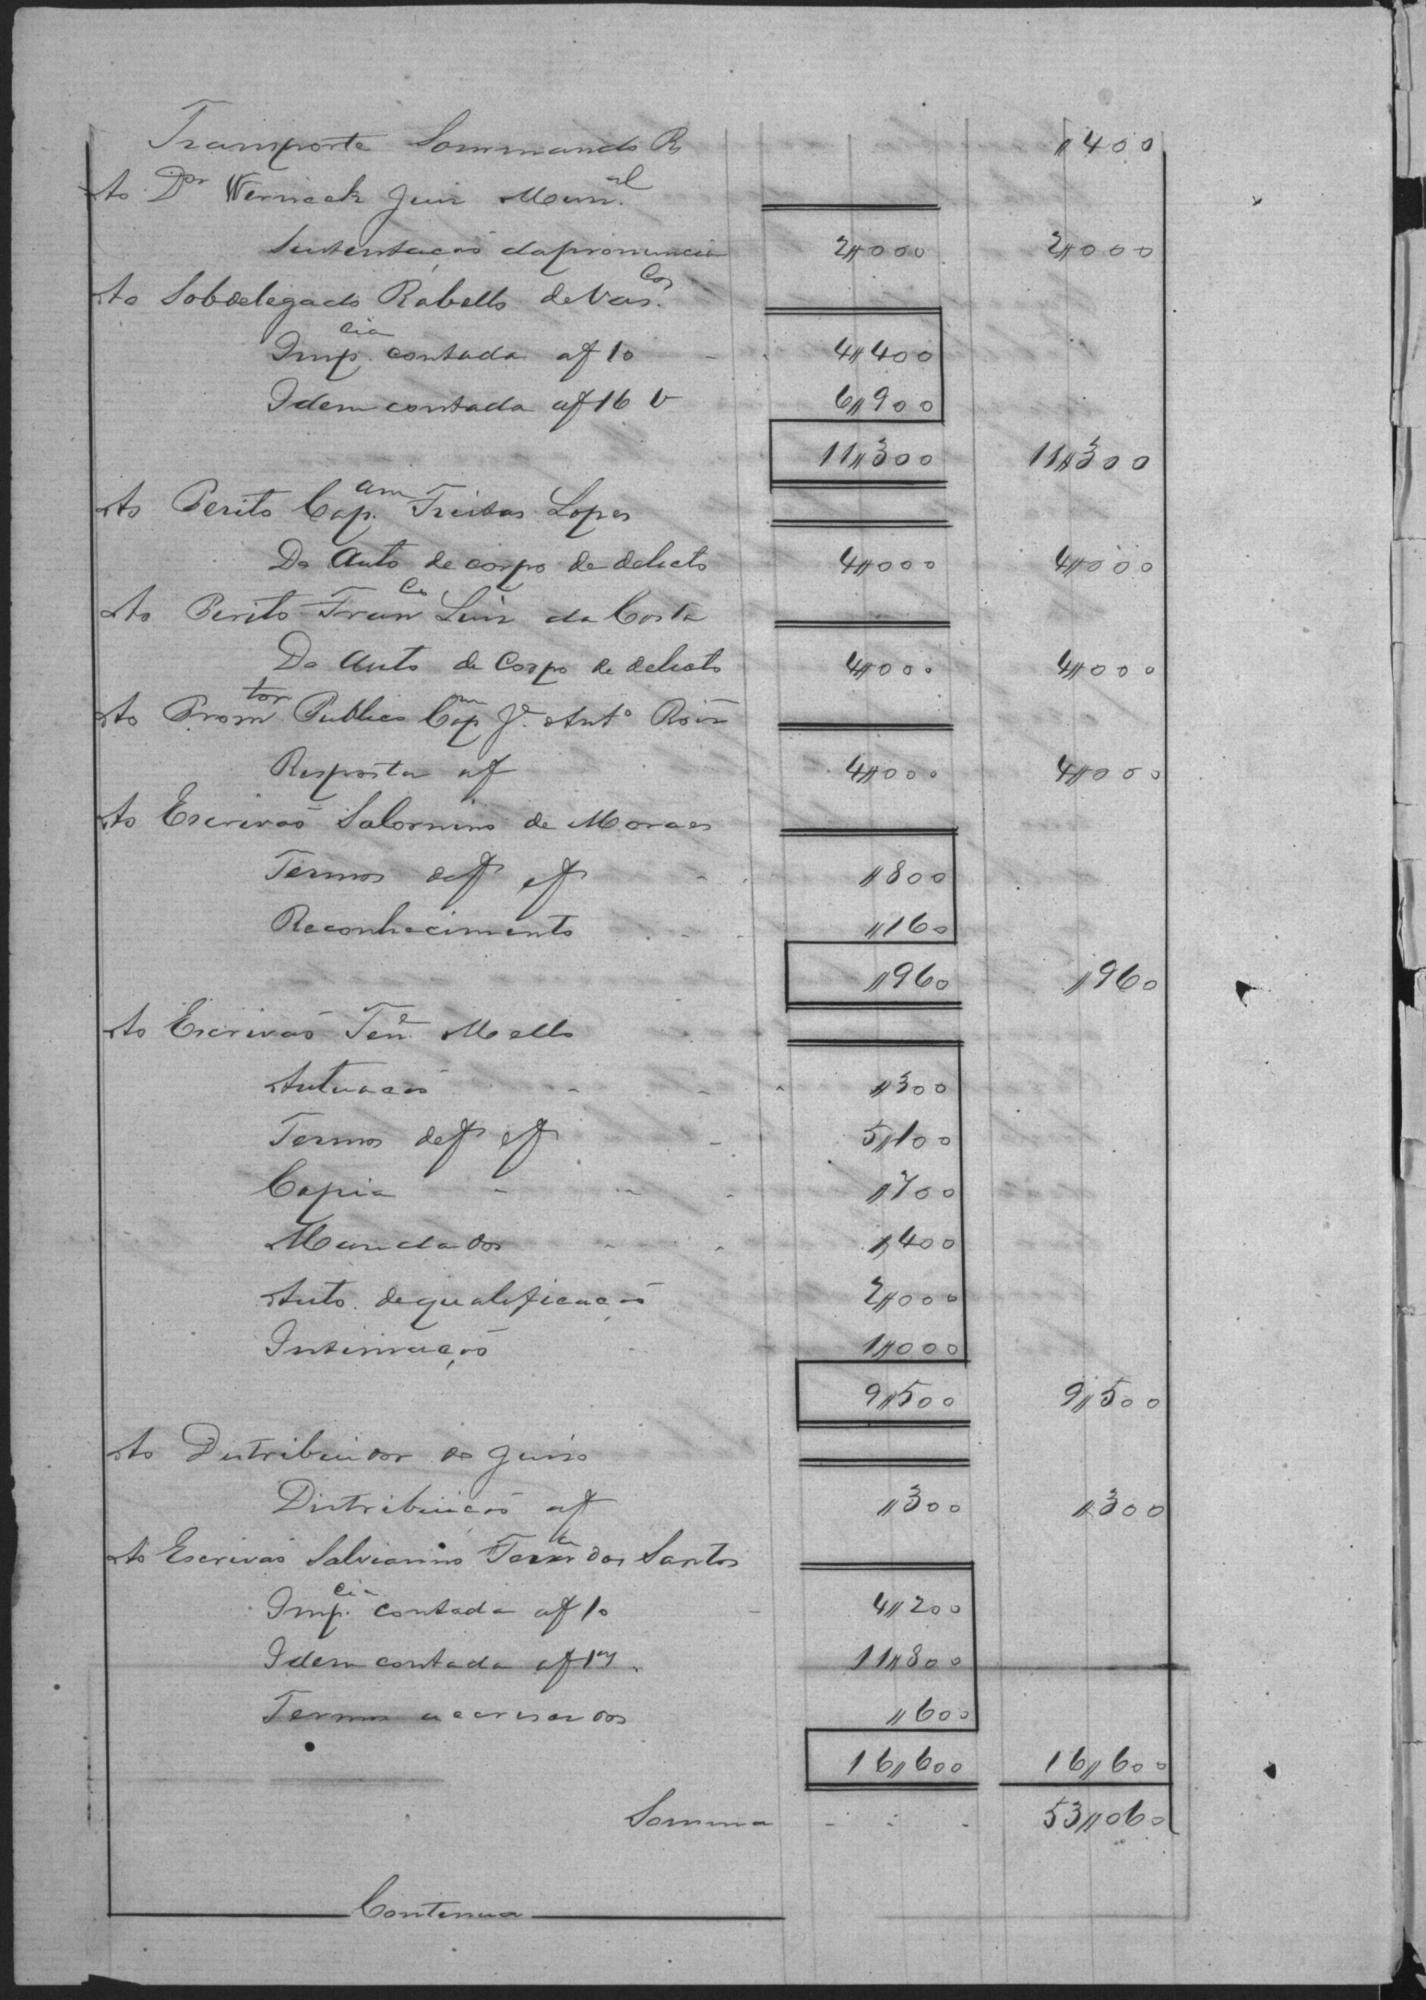 Transporte Sommando Rs 〃400
Ao Dor Werneck Juiz Munal
Sustentação da pronuncia 2〃000 2〃000
Ao Sobdelegado Rabello de Vascos
Impcia contada a f 10 4〃400
Idem contada a f 16 v 6〃900
11〃300 11〃300
Ao Perito Capam Freitas Lopes
Do Auto de corpo de delicto 4〃000 4〃000
Ao Perito Franco Luiz da Costa
Do Auto de Corpo de delicto 4〃000 4〃000
Ao Promtor Publico Capm Je Anto
Resposta a f 4〃000 4〃000
Ao Escrivão Salornino de Moraes
Termos de f e f 〃800
Reconhecimento 〃160
〃960 〃960
Ao Escrivão Tene Mello
Autuacão 〃300
Termos de f e f 5〃100
Copia 〃700
Mandados 〃400
Auto de qualificação 2〃000
Intimação 1〃000
9〃500 9〃500
Ao Distribuidor do Juiso
Distribuicão a f 〃300 〃300
Ao Escrivão Salvianno dos Santos
Impcia contada a f 10 4〃200
Idem contada a f 11〃800
Termos accrescidos 〃600
16〃600 16〃600
Somma 53〃060
Continua